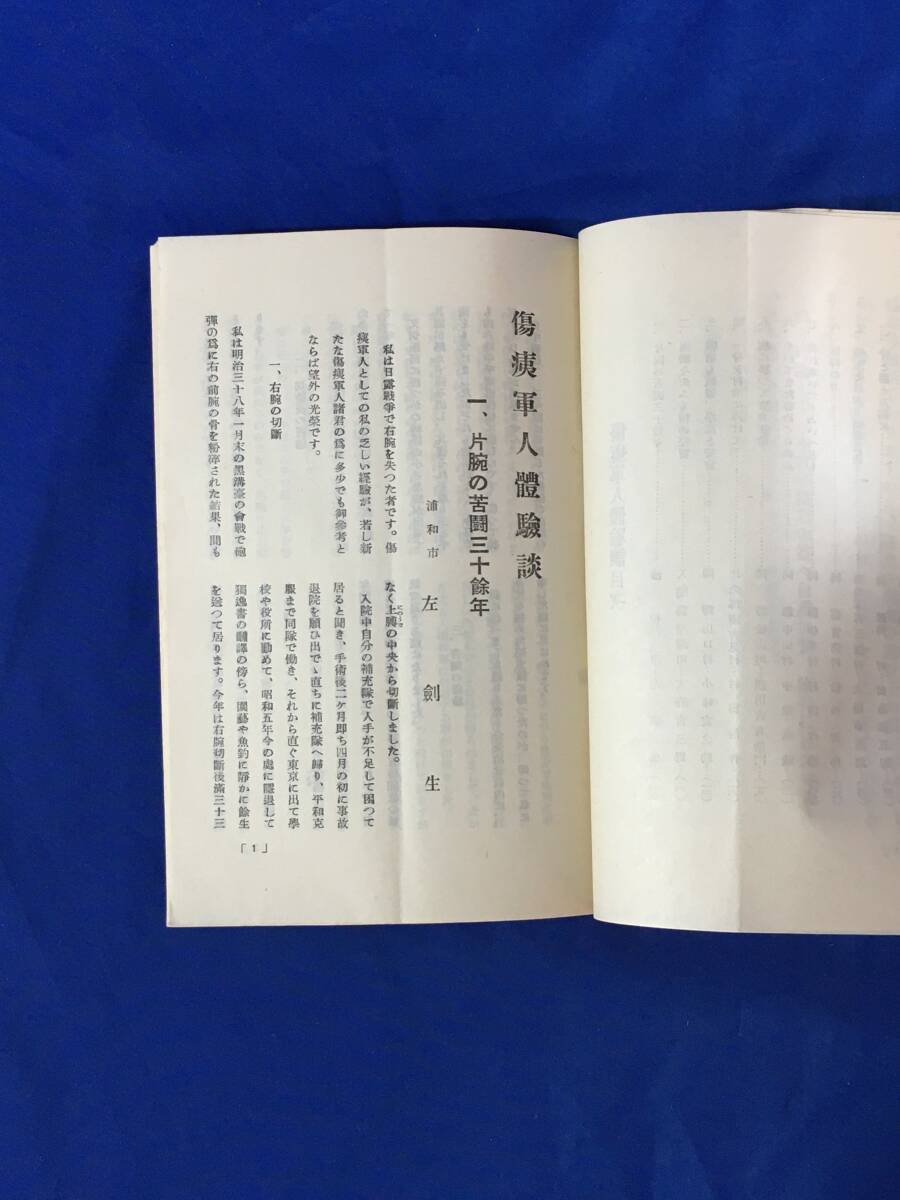 傷痍軍人體驗談
一、片腕の苦鬪三十餘年
浦和市 左劍生
私は日露戰爭で右腕を失つた者です。傷
痍軍人としての私の乏しい經驗が、若し新
たな傷痍軍人諸君の爲に多少でも御參考と
ならば望外の光榮です。
一、右腕の切斷
私は明治三十八年一月末の黑溝臺の會戰で砲
彈の爲に右の前腕の骨を粉碎された結果、間も
なく上膊の中央から切斷しました。
入院中自分の補充隊で人手が不足して困つて
居ると聞き、手術後二ケ月卽ち四月の初に事故
退院を願ひ出でゝ直ちに補充隊へ歸り、平和克
服まで同隊で働き、それから直ぐ東京に出て學
校や役所に勤めて、昭和五年今の處に隱退して
獨逸書の飜譯の傍ら、園藝や魚釣に靜かに餘生
を送つて居ります。今年は右腕切斷後滿三十三
「1」